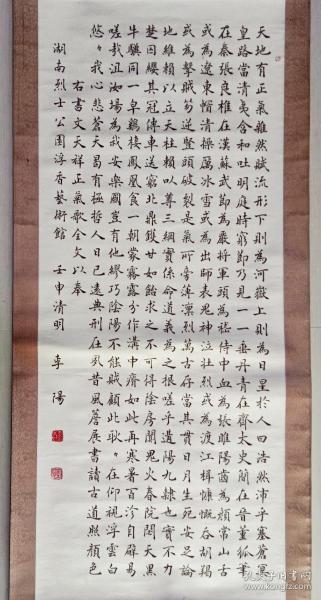 天地有正氣雜然賦流形下則為河嶽上則為日星於人曰浩然沛乎塞蒼冥
皇路當清夷含和吐明庭時窮節乃見一一垂丹青在齊太史簡在晉董狐筆
在秦張良椎在漢蘇武節為嚴將軍頭為嵇侍中血為張睢陽齒為顏常山舌
或為遼東帽清操厲冰雪或為出師表鬼神泣壯烈或為渡江楫慷慨吞胡羯
或為擊賊笏逆豎頭破裂是氣所旁薄凜烈萬古存當其貫日月生死安足論
地維賴以立天柱賴以尊三綱實係命道義為之根嗟乎遘陽九隸也實不力
楚囚纓其冠傳車送窮北鼎鑊甘如飴求之不可得陰房闃鬼火春院閟天黑
牛驥同一皁雞棲鳳凰食一朝蒙霧露分作溝中瘠如此再寒暑百沴自辟易
嗟哉沮洳場為我安樂國豈有他繆巧陰陽不能賊顧此耿々在仰視浮雲白
悠々我心悲蒼天曷有極哲人日已遠典刑在夙昔風簷展書讀古道照顏色
右書文天祥正氣歌全文以奉
湖南烈士公園浮香藝術館 壬申清明 李陽